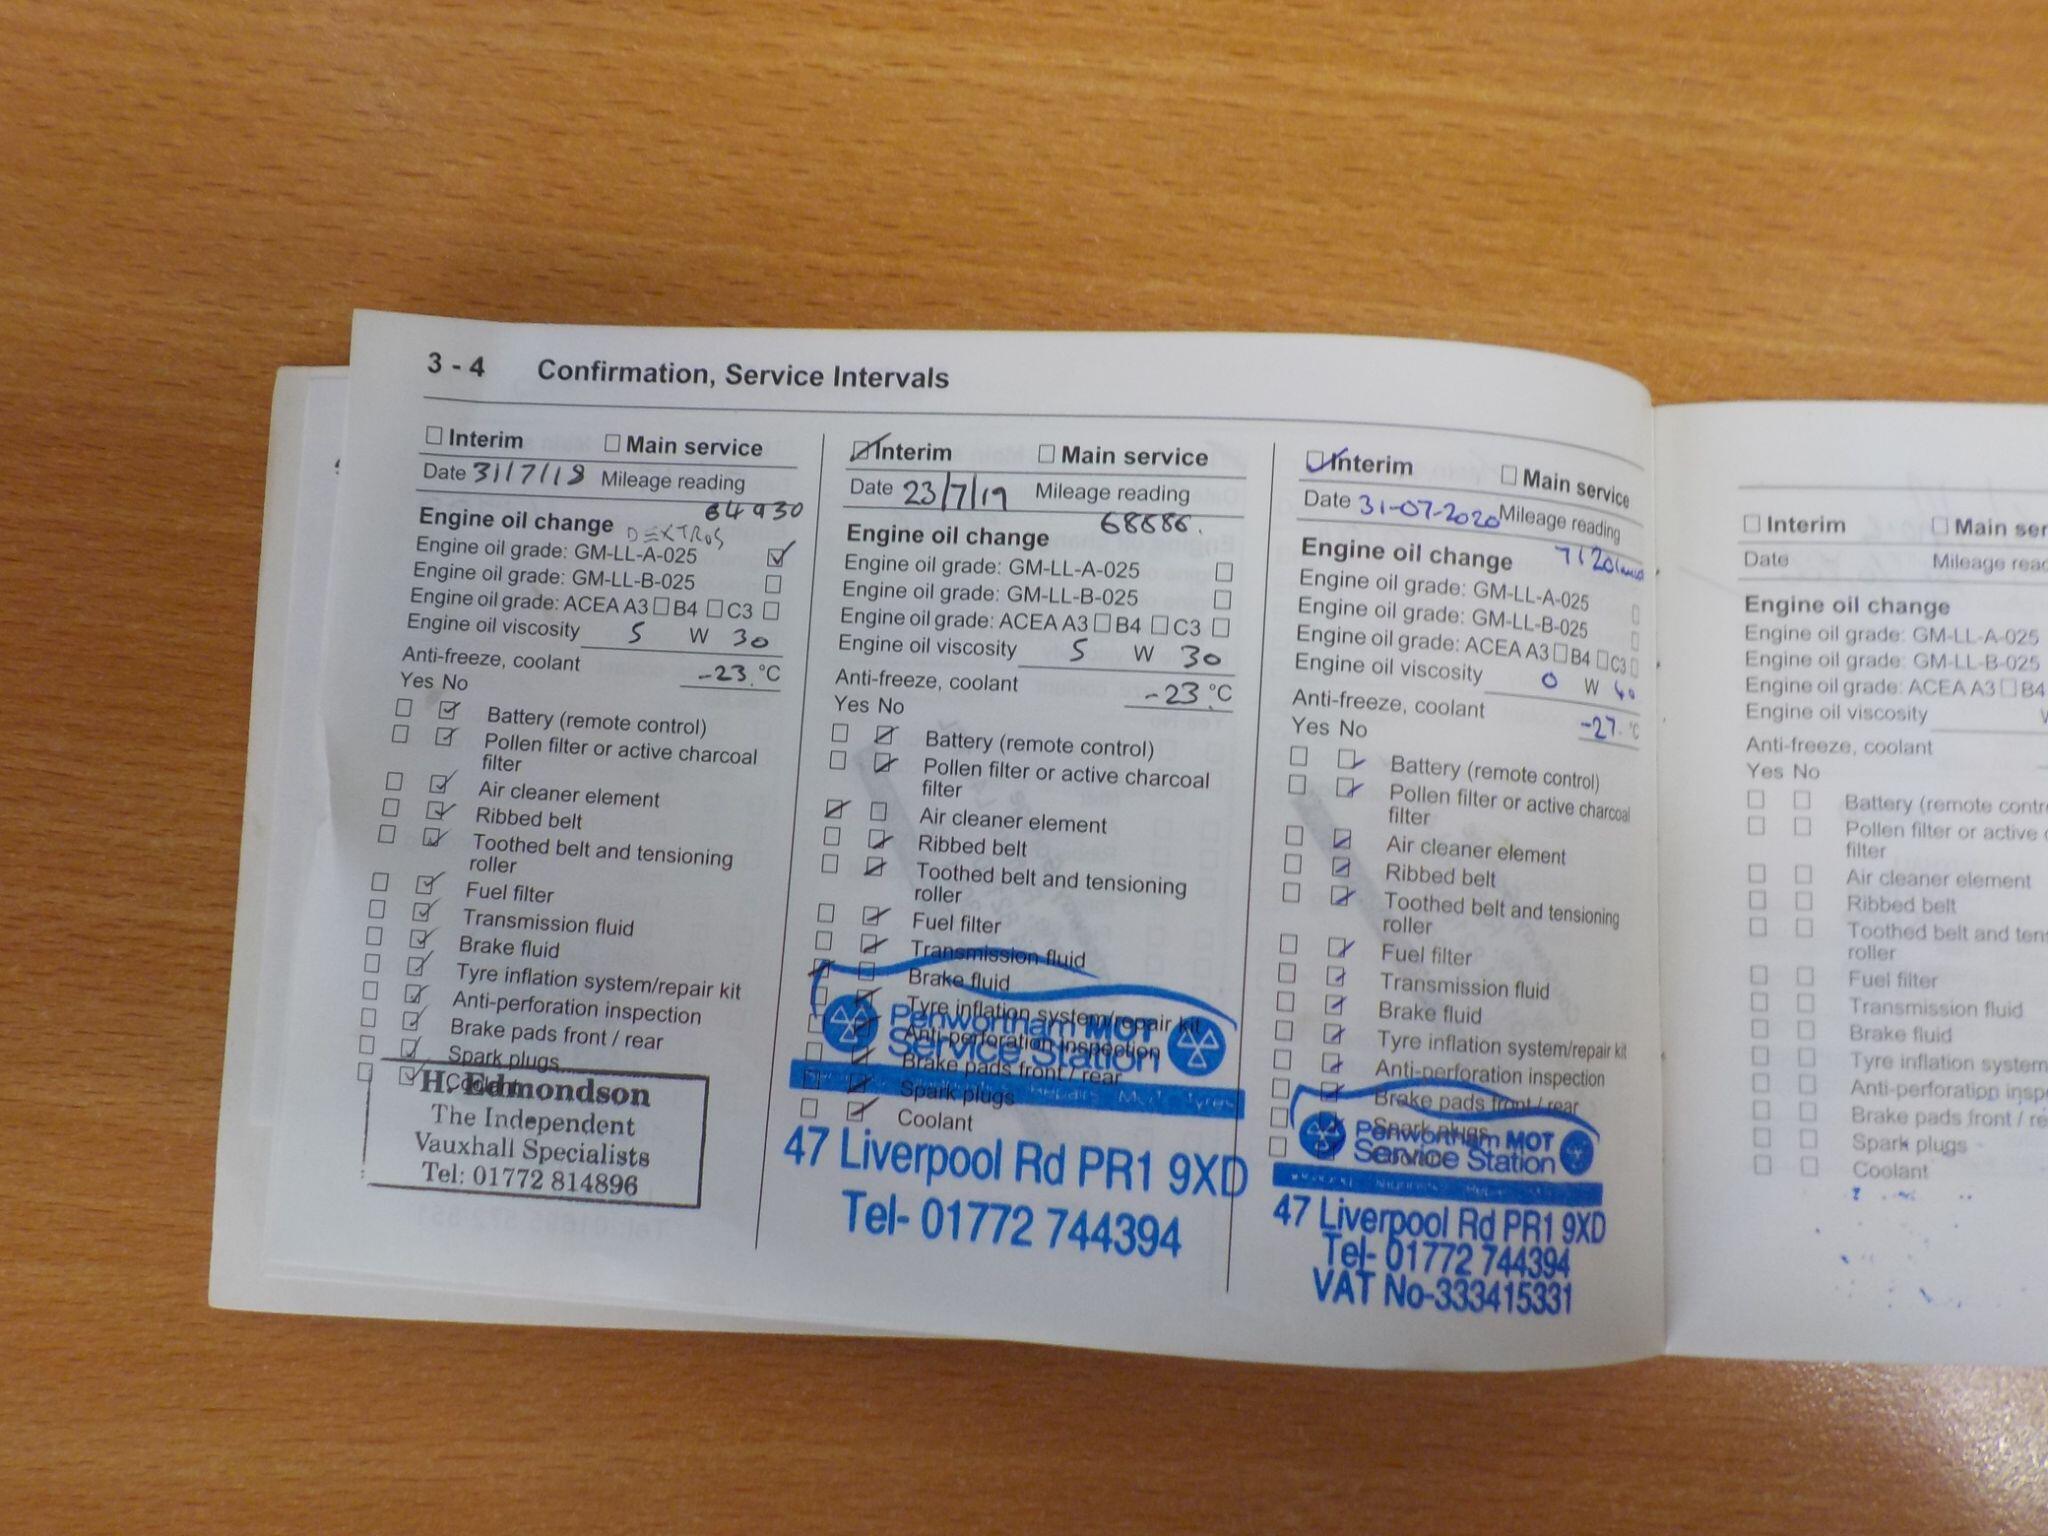 3 - 4 Confirmation, Service Intervals
Interim Main service
Date 31/7/18 Mileage reading
64930
Engine oil change DEXTROS
Engine oil grade: GM-LL-A-025
Engine oil grade: GM-LL-B-025
Engine oil grade: ACEA A3 B4 C3
Engine oil viscosity 5 W 30
Anti-freeze, coolant -23.°C
Yes No
Battery (remote control)
Pollen filter or active charcoal
filter
Air cleaner element
Ribbed belt
Toothed belt and tensioning
roller
Fuel filter
Transmission fluid
Brake fluid
Tyre inflation system/repair kit
Anti-perforation inspection
Brake pads front / rear
Spark plugs
Coolant
H. Edmondson
The Independent
Vauxhall Specialists
Tel: 01772 814896
Interim Main service
Date 23/7/19 Mileage reading
68686.
Engine oil change
Engine oil grade: GM-LL-A-025
Engine oil grade: GM-LL-B-025
Engine oil grade: ACEA A3 B4 C3
Engine oil viscosity 5 W 30
Anti-freeze, coolant -23.°C
Yes No
Battery (remote control)
Pollen filter or active charcoal
filter
Air cleaner element
Ribbed belt
Toothed belt and tensioning
roller
Fuel filter
Transmission fluid
Brake fluid
Tyre inflation system/repair kit
Anti-perforation inspection
Brake pads front / rear
Spark plugs
Coolant
Penwortham MOT
Service Station
Repairs Mot Tyres
47 Liverpool Rd PR1 9XD
Tel- 01772 744394
Interim Main service
Date 31-07-2020 Mileage reading
7120
Engine oil change
Engine oil grade: GM-LL-A-025
Engine oil grade: GM-LL-B-025
Engine oil grade: ACEA A3 B4 C3
Engine oil viscosity 0 W 40
Anti-freeze, coolant -27.°C
Yes No
Battery (remote control)
Pollen filter or active charcoal
filter
Air cleaner element
Ribbed belt
Toothed belt and tensioning
roller
Fuel filter
Transmission fluid
Brake fluid
Tyre inflation system/repair kit
Anti-perforation inspection
Brake pads front / rear
Spark plugs
Coolant
Penwortham MOT
Service Station
47 Liverpool Rd PR1 9XD
Tel- 01772 744394
VAT No-333415331
Interim Main ser
Date Mileage read
Engine oil change
Engine oil grade: GM-LL-A-025
Engine oil grade: GM-LL-B-025
Engine oil grade: ACEA A3 B4
Engine oil viscosity W
Anti-freeze, coolant
Yes No
Battery (remote contr
Pollen filter or active c
filter
Air cleaner element
Ribbed belt
Toothed belt and tens
roller
Fuel filter
Transmission fluid
Brake fluid
Tyre inflation system
Anti-perforation insp
Brake pads front / re
Spark plugs
Coolant